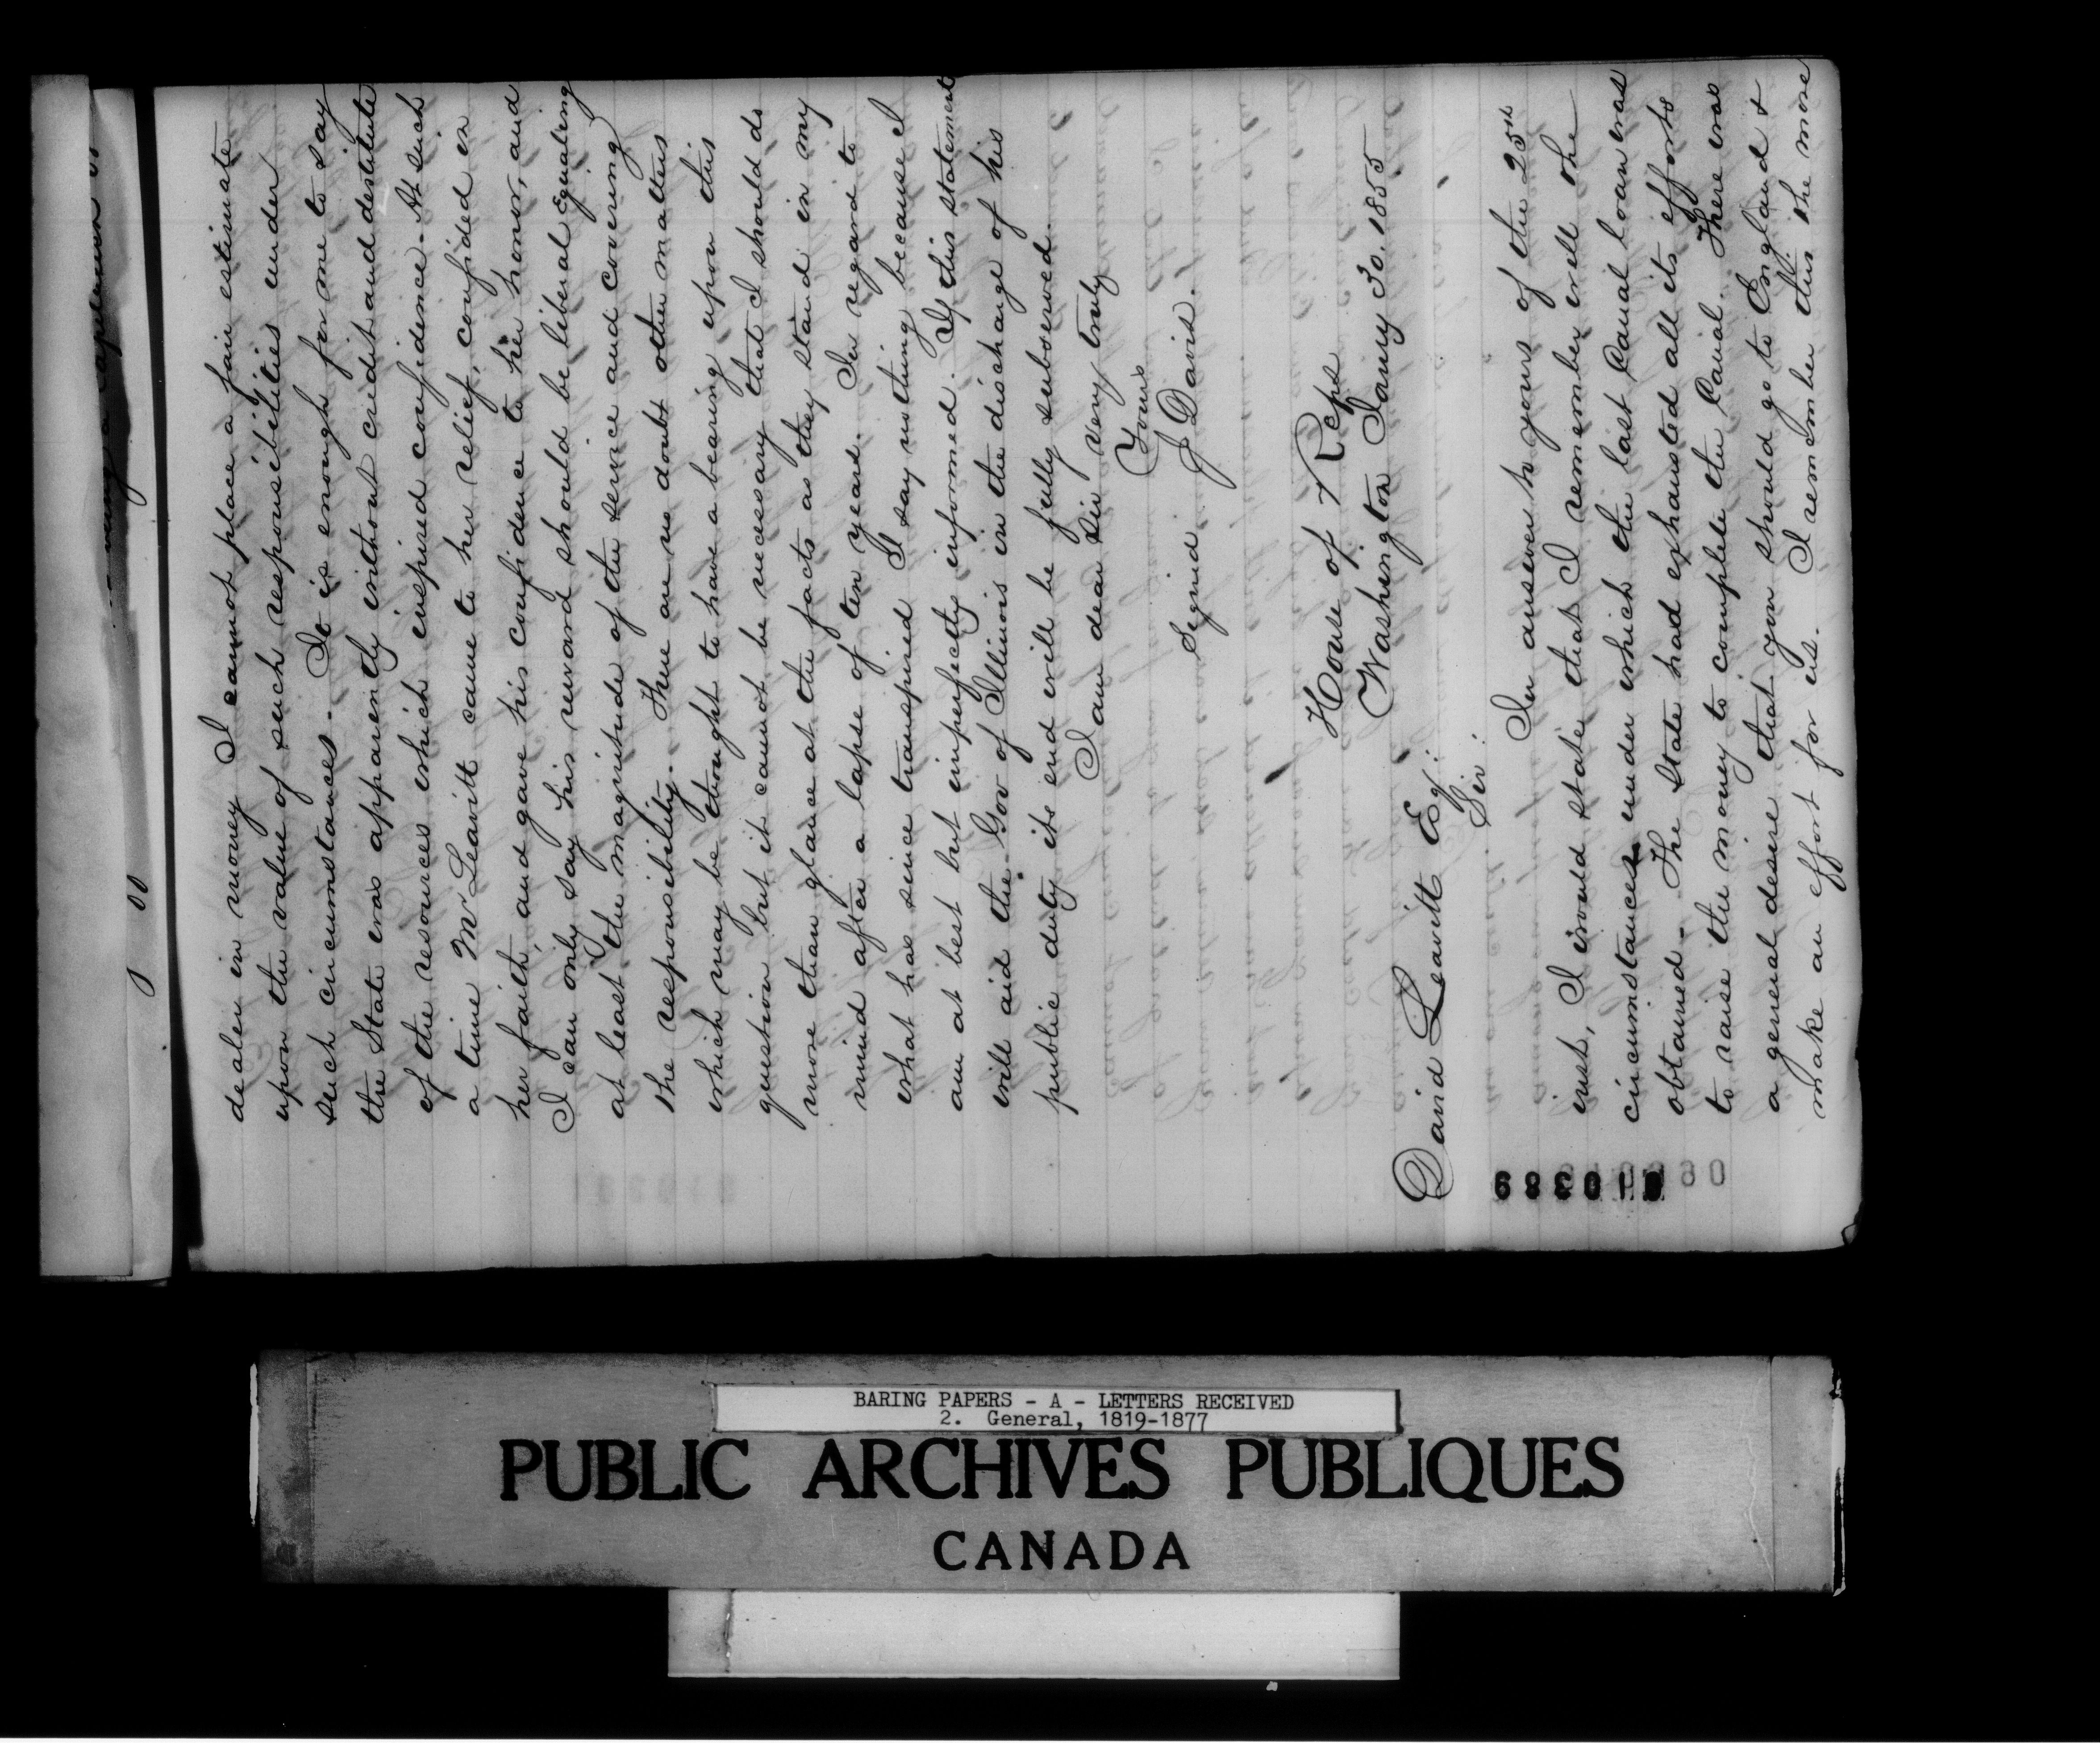 dealer in money I cannot place a fair estimate
upon the value of such responsibilities under
such circumstances. It is enough for me to say
the State was apparently without credit and destitute
of the resources which inspired confidence. At such
a time Mr Leavitt came to her relief, confided in
her faith, and gave his confidence to her honor, and
I can only say his reward should be liberal equaling
at least the magnitude of the service and covering
the responsibility. There are no doubt other matters
which may be thought to have a bearing upon this
question but it cannot be necessary that I should do
more than glance at the facts as they stand in my
mind after a lapse of ten years. In regard to
what has since transpired I say nothing because I
am at best but imperfectly informed. If this statement
will aid the Gov of Illinois in the discharge of his
public duty its end will be fully subserved.
I am dear Sir very truly
Yours
Signed J Davis.
House of Reps
Washington Jany 30. 1855
David Leavitt Eq:
Sir:
In answer to yours of the 25th
inst, I would state that I remember well the
circumstances under which the last Canal loan was
obtained. The State had exhausted all its efforts
to raise the money to complete the Canal. There was
a general desire that you should go to England &
make an effort for us. I remember this the more
010389
BARING PAPERS - A - LETTERS RECEIVED
2. General, 1819-1877
PUBLIC ARCHIVES PUBLIQUES
CANADA